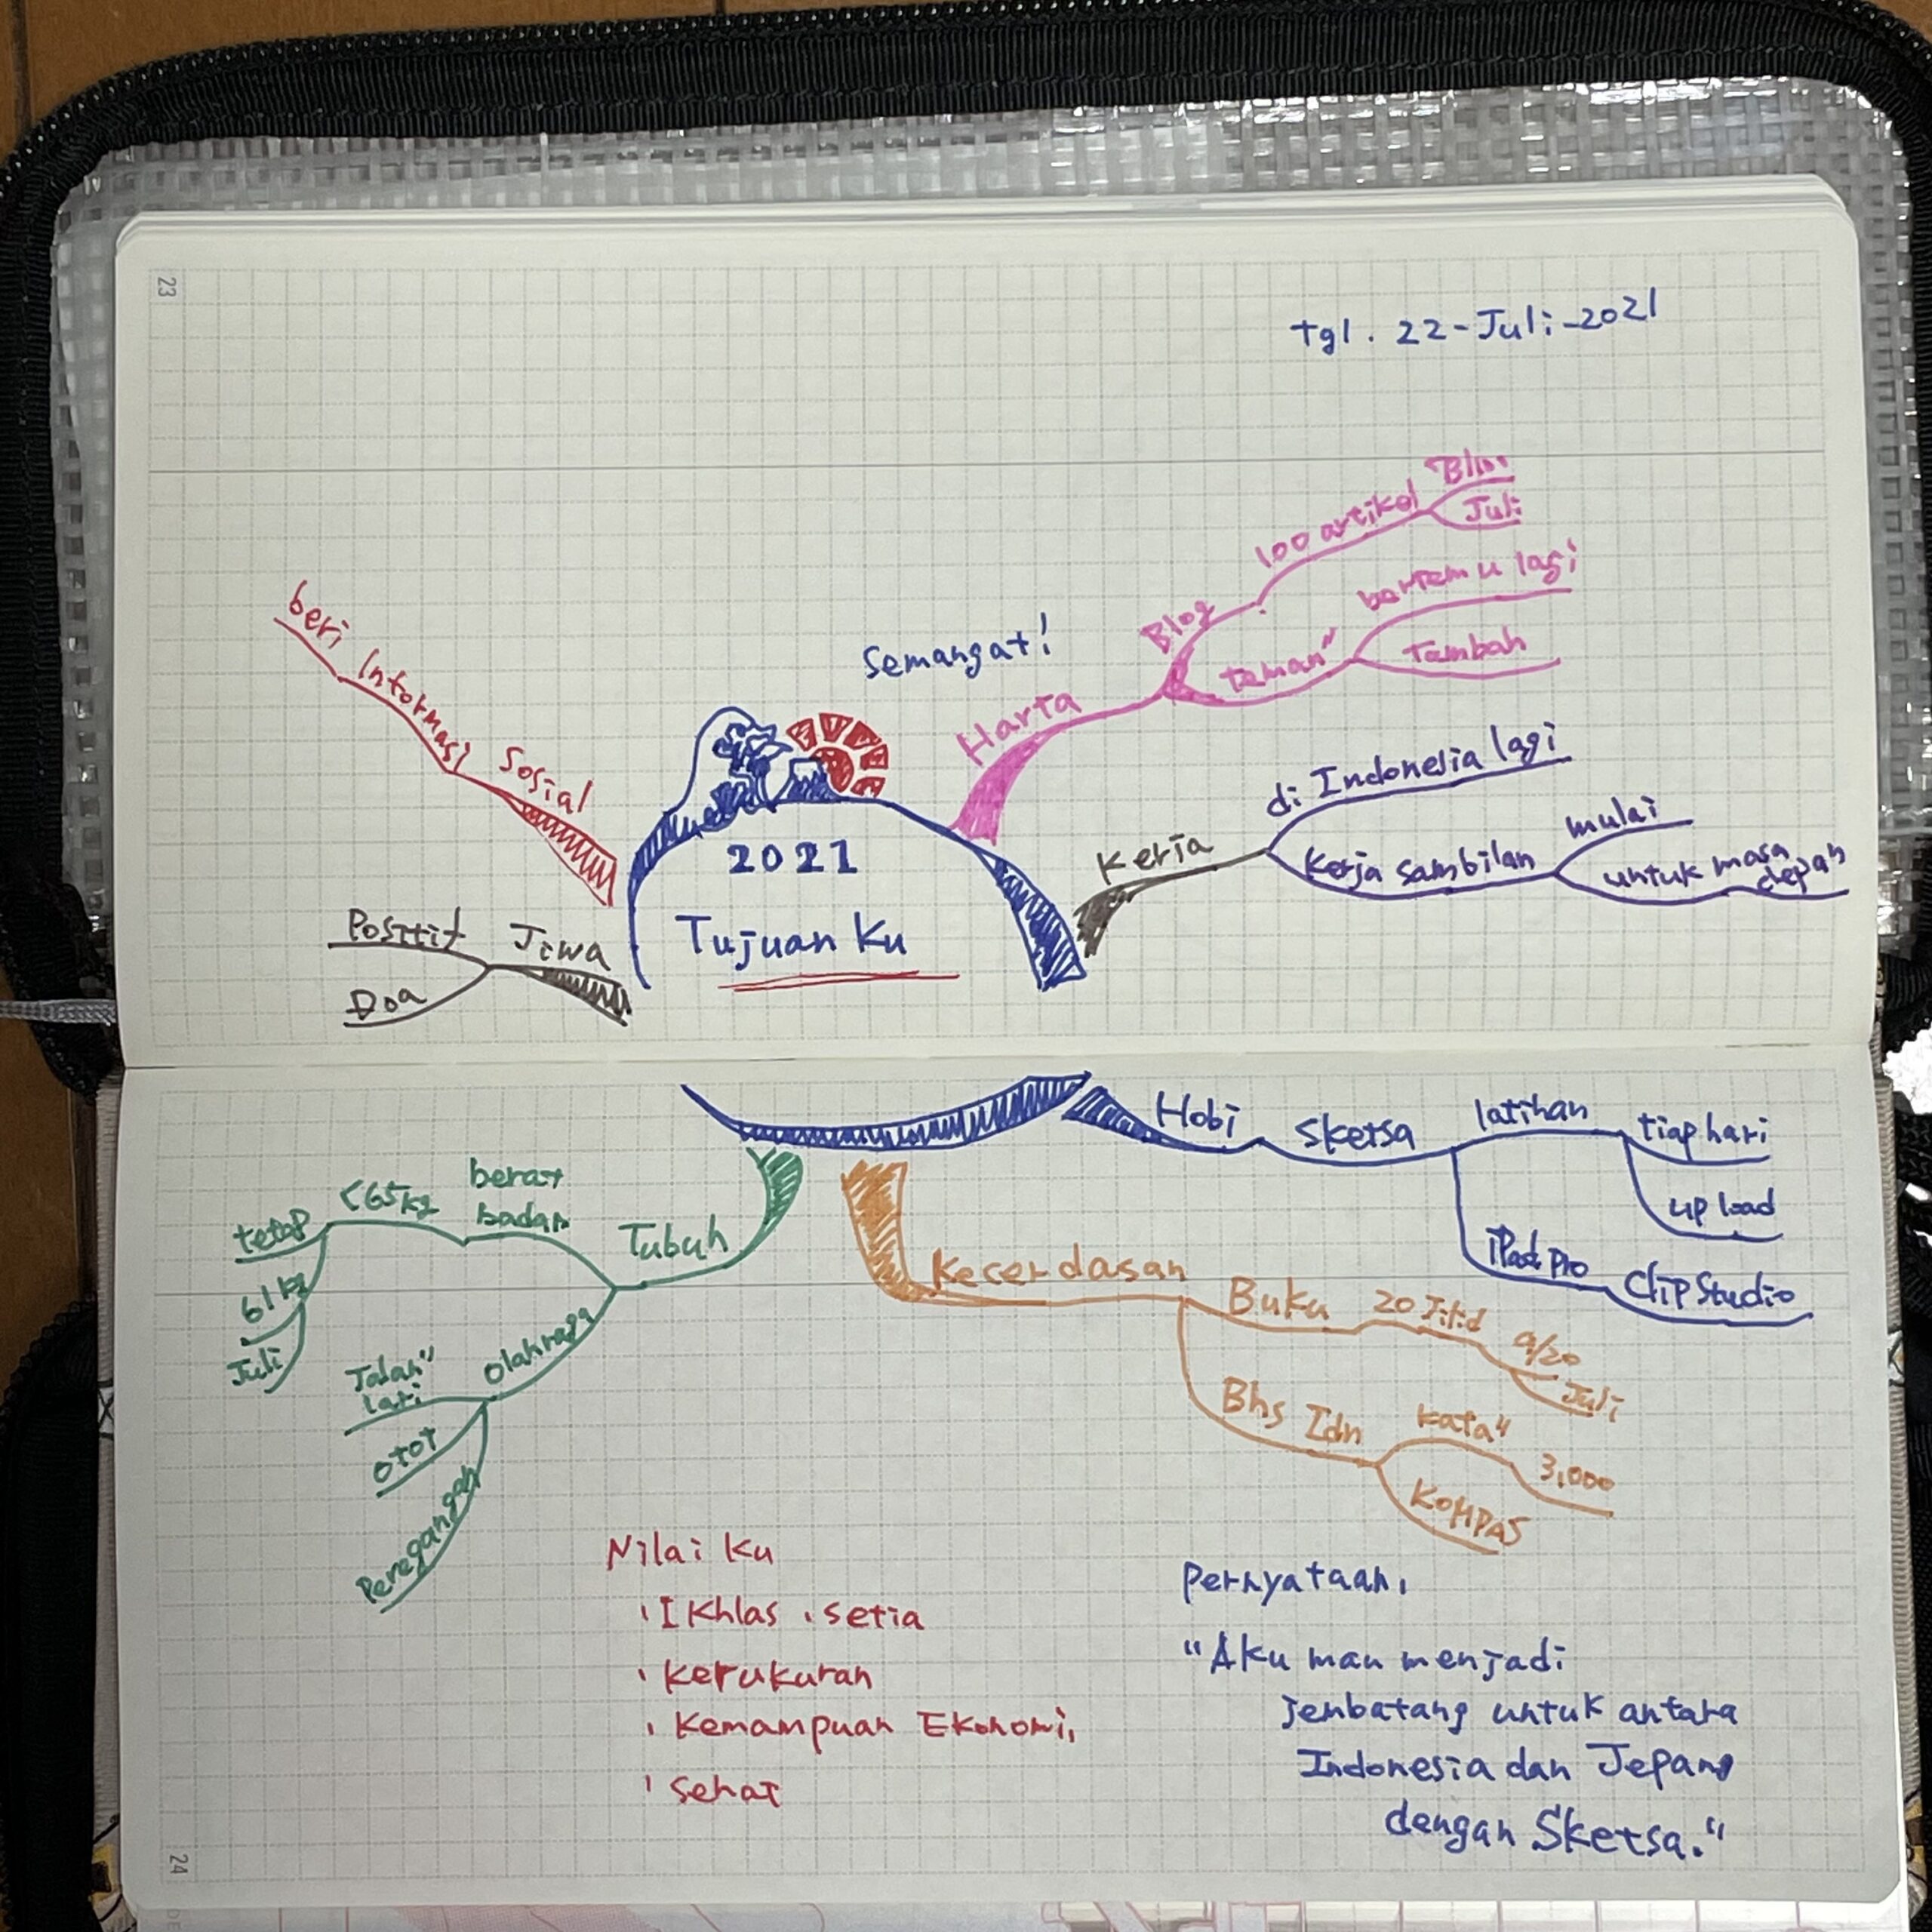 23
Tgl. 22-Juli-2021
Semangat!
2021
Tujuan Ku
Harta
Blog
100 artikel
Juli
teman"
bertemu lagi
Tambah
Kerja
di Indonesia lagi
Kerja sambilan
mulai
untuk masa
depan
Sosial
beri Informasi
Jiwa
Positif
Doa
Hobi
Sketsa
latihan
tiap hari
up load
iPad Pro
Clip Studio
Kecerdasan
Buku
20 Jilid
9/20
Juli
Bhs Idn
Kata"
3,000
KOMPAS
Tubuh
berat
badan
<65kg
tetap
61kg
Juli
Olahraga
Jalan"
lari
otot
Peregangan
Nilai Ku
・Ikhlas ・setia
・kerukuran
・Kemampuan Ekonomi,
・sehat
Pernyataan,
"Aku mau menjadi
jembatang untuk antara
Indonesia dan Jepang
dengan Sketsa."
24